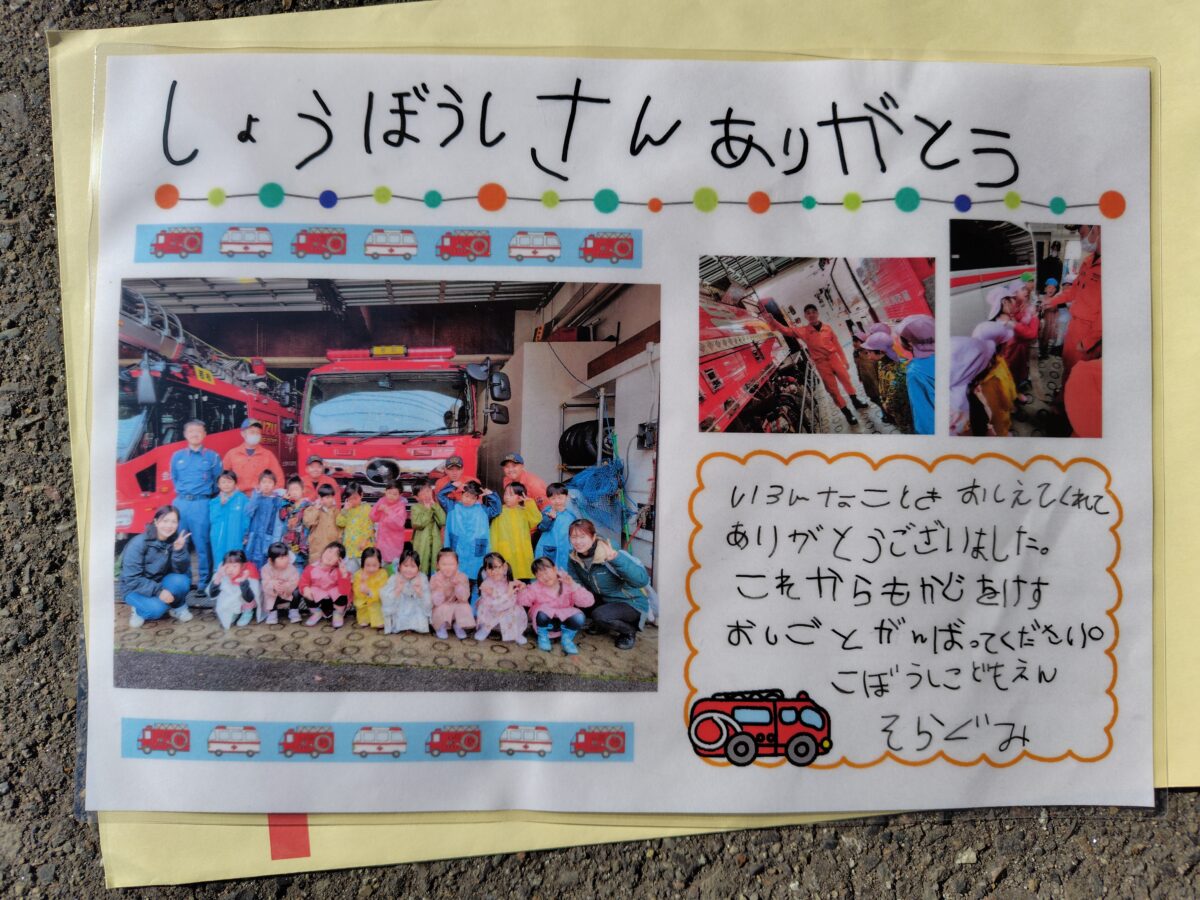 しょうぼうしさんありがとう
いろんなことを おしえてくれて
ありがとうございました。
これからもかじをけす
おしごとがんばってください。
こぼうしこどもえん
そらぐみ